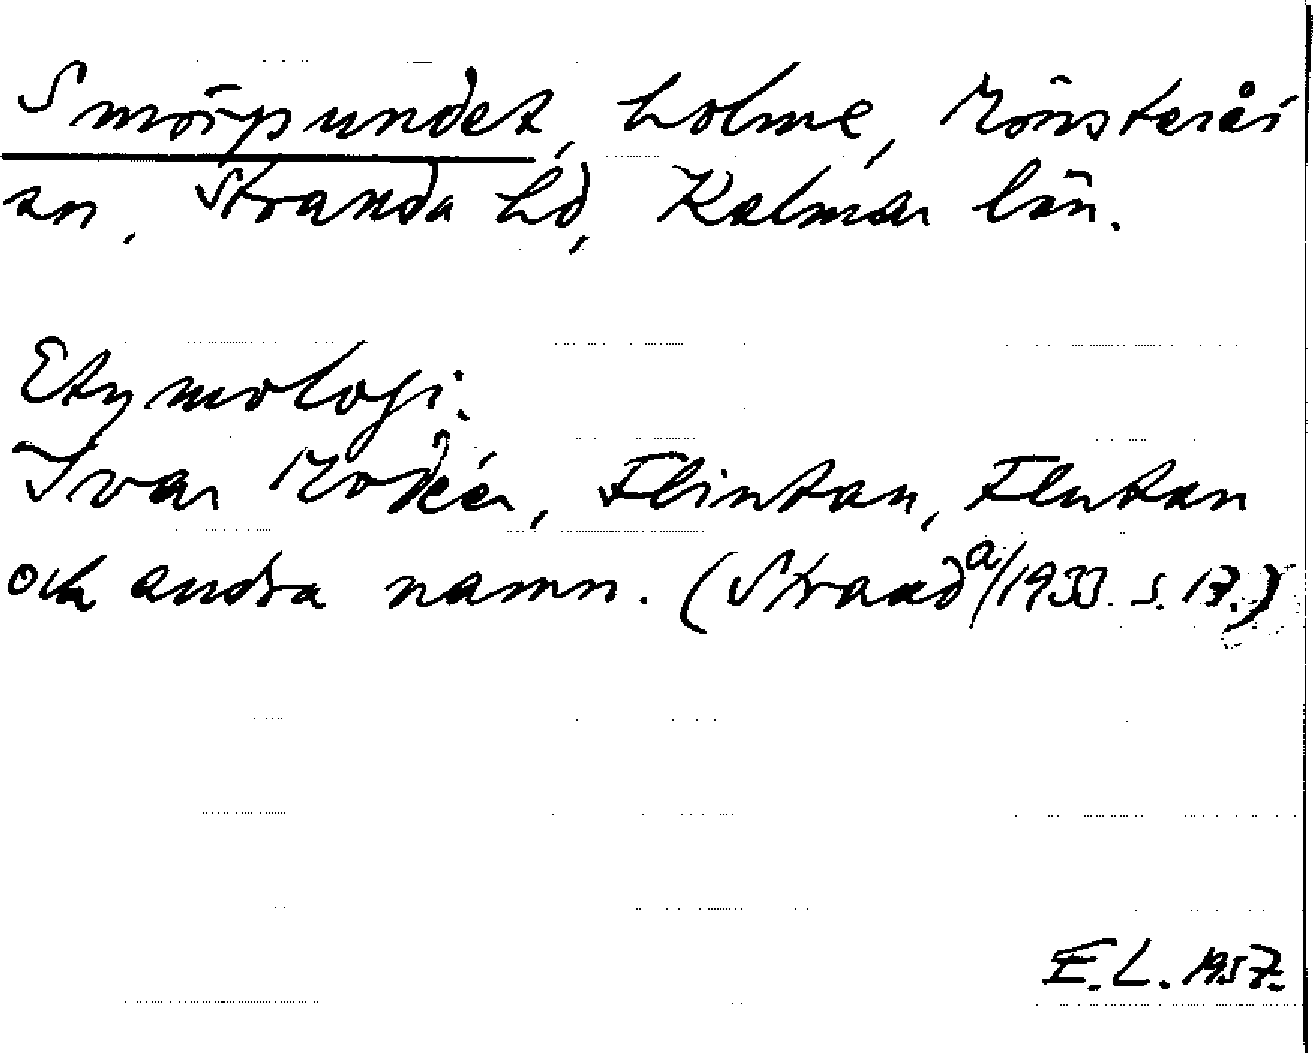 Smörpundet, holme, Mönsterås
sn, Stranda hd, Kalmar län.
Etymologi:
Ivar Modéer, Flintan, Flutan
och andra namn. (Stranda/1933. s. 17.)
E.L. 1957.